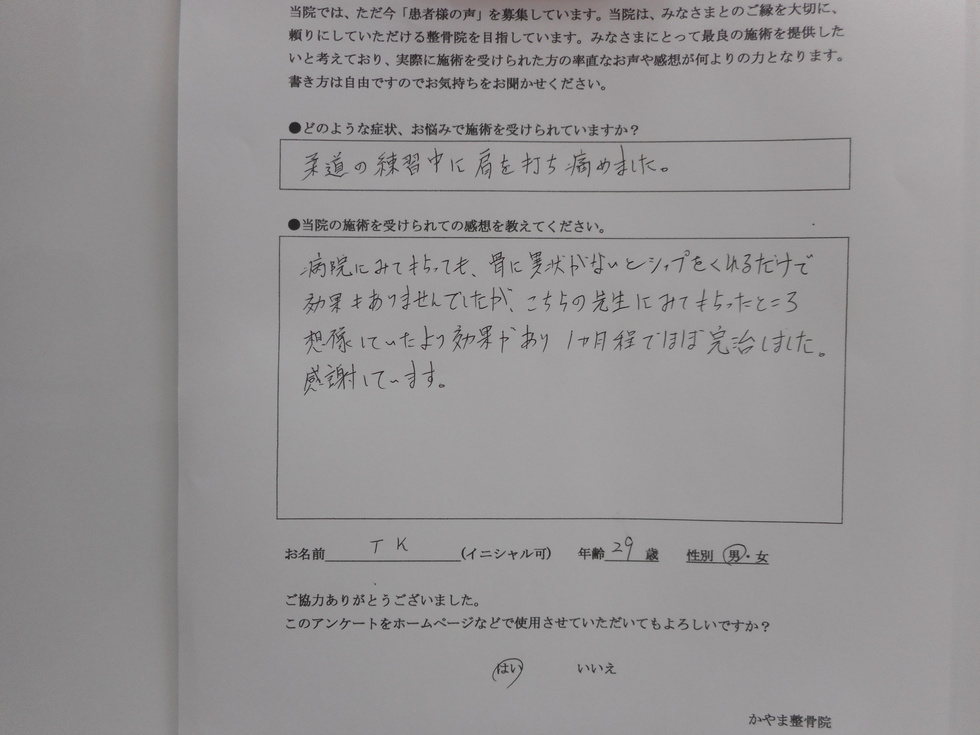 当院では、ただ今「患者様の声」を募集しています。当院は、みなさまとのご縁を大切に、
頼りにしていただける整骨院を目指しています。みなさまにとって最良の施術を提供した
いと考えており、実際に施術を受けられた方の率直なお声や感想が何よりの力となります。
書き方は自由ですのでお気持ちをお聞かせください。
●どのような症状、お悩みで施術を受けられていますか?
柔道の練習中に肩を打ち痛めました。
●当院の施術を受けられての感想を教えてください。
病院にみてもらっても、骨に異状がないとシップをくれるだけで
効果もありませんでしたが、こちらの先生にみてもらったところ
想像していたより効果があり 1カ月程でほぼ完治しました。
感謝しています。
お名前 T K (イニシャル可) 年齢 29 歳 性別 男・女
ご協力ありがとうございました。
このアンケートをホームページなどで使用させていただいてもよろしいですか?
はい いいえ
かやま整骨院